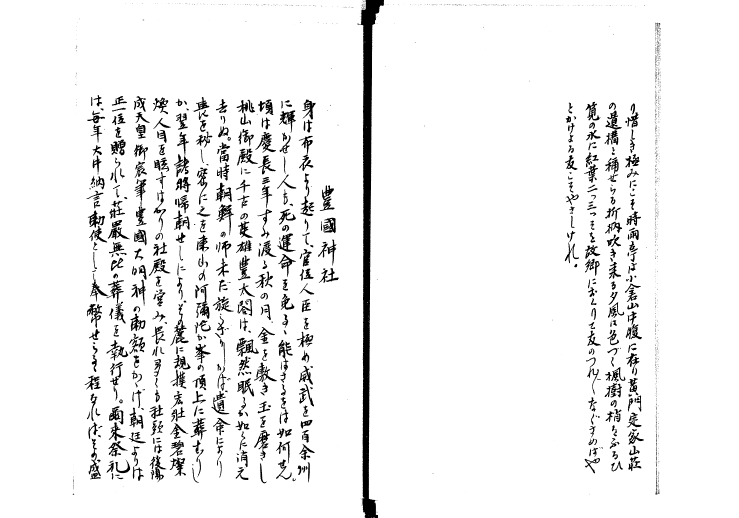 り惜しき極みにこそ時雨亭は小倉山中腹に在り黄門定家山荘
の遺構と稱せらる折柄吹き来る夕風に色づく楓樹の梢をふるひ
筧の水に紅葉二つ三つそを故郷におくりて友のつれ〴〵なぐさめばや
とかけよる友こそやさしけれ。
豊國神社
身は布衣より起りて、官位人臣を極め威武を四百余州
に輝かせし人も、死の運命を免るゝ能はざるをは如何せん。
頃は慶長三年すみ渡る秋の月、金を敷き玉を磨きし
桃山御殿に千古の英雄豊太閤は、飄然眠るが如くに消え
去りぬ。當時朝鮮の師未だ旋らざりしかば、遺命により
喪を秘し、密に之を東山の阿彌陀が峯の頂上に葬むりし
が、翌年諸将帰朝せしにより、其麓に規模宏壮金碧燦
爛人目を眩すばかりの社殿を営み、長れ多くも社頭には後陽
成天皇御宸筆豊國大明神の勅額をかゝげ、朝廷よりは
正一位を贈られて、荘嚴無比の葬儀を執行せり。爾来祭礼に
は、毎年大中納言勅使として奉幣せらるゝ程なれば、その盛